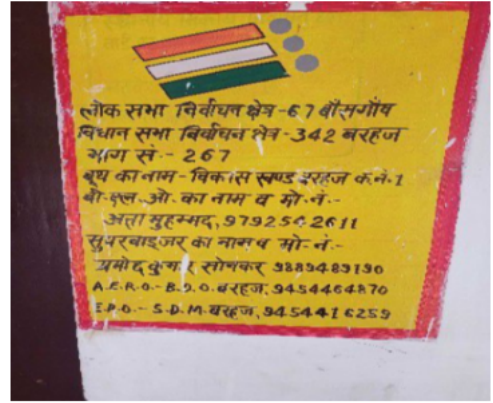 लोक सभा निर्वाचन क्षेत्र -67 बाँसगाँव
विधान सभा निर्वाचन क्षेत्र - 342 बरहज
भाग सं.- 267
बूथ का नाम - विकास खण्ड बरहज क.नं.1
बी.एल.ओ. का नाम व मो.नं.-
अता मुहम्मद, 9792542611
सुपरवाइजर का नाम व मो.नं.-
प्रमोद कुमार सोनकर 9889489190
A.E.R.O.- B.D.O. बरहज, 9454464870
E.R.O.- S.D.M. बरहज, 9454416259